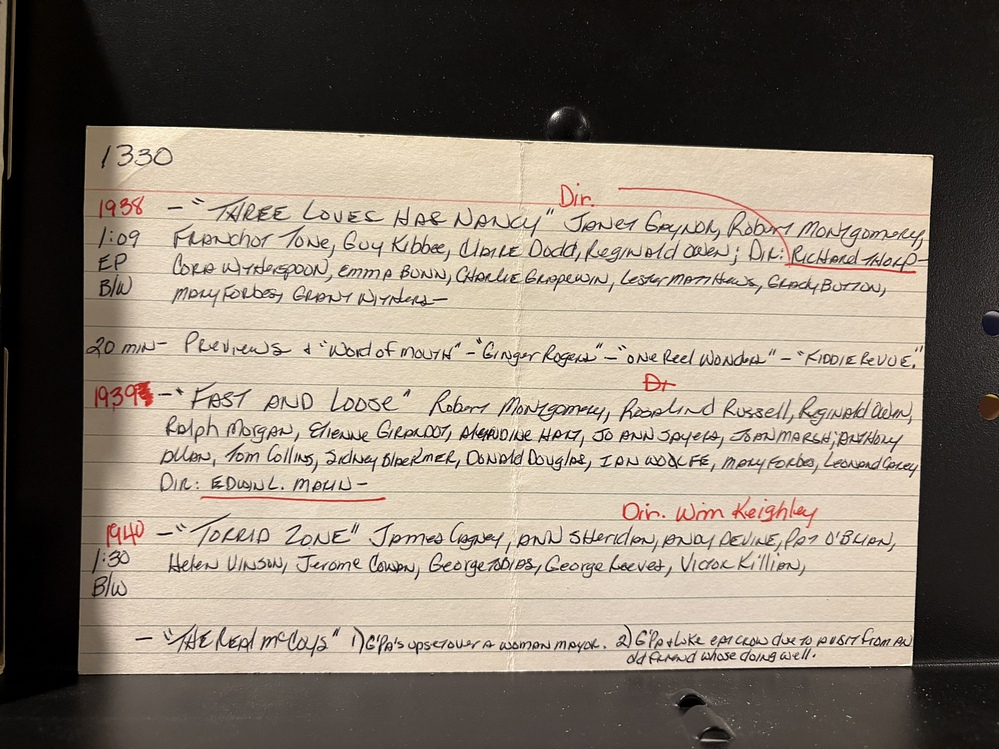 1330
Dir.
1938 - "THREE LOVES HAS NANCY" JANET GAYNOR, Robert Montgomery,
1:09 FRANCHOT TONE, GUY Kibbee, CLAIRE DODD, REGINALD OWEN; DIR: RICHARD THORP-
EP CORA WITHERSPOON, EMMA DUNN, CHARLIE GRAPEWIN, LESTER MATTHEWS, GRADY SUTTON,
B/W MARY FORBES, GRANT WITHERS-
20 min- Previews + "Word of MOUTH" - "Ginger Rogers" - "ONE Reel WONDERS" - "KIDDIE REVUE."
Dr
1939 - "FAST AND LOOSE" Robert Montgomery, Rosalind Russell, Reginald Owen,
Ralph Morgan, ETIENNE GIRARDOT, HALE, JO ANN SAYERS, JOAN MARSH, ANTHONY
ALLAN, Tom Collins, SIDNEY BLACKMER, DONALD DOUGLAS, IAN WOOLFE, MARY FORBES, LEONARD CAREY
DIR: EDWIN L. MARIN-
Dir. Wm Keighley
1940 - "TORRID ZONE" JAMES CAGNEY, ANN SHERIDAN, ANDY DEVINE, PAT O'BRIAN,
1:30 Helen VINSON, Jerome COWAN, GEORGE TOBIAS, GEORGE REEVES, VICTOR KILLIAN,
B/W
- "THE REAL McCOYS" 1) G'PA'S upset over A WOMAN MAYOR. 2) G'PA & Luke eat CROW due to A VISIT FROM AN
old FRIEND whose doing well.